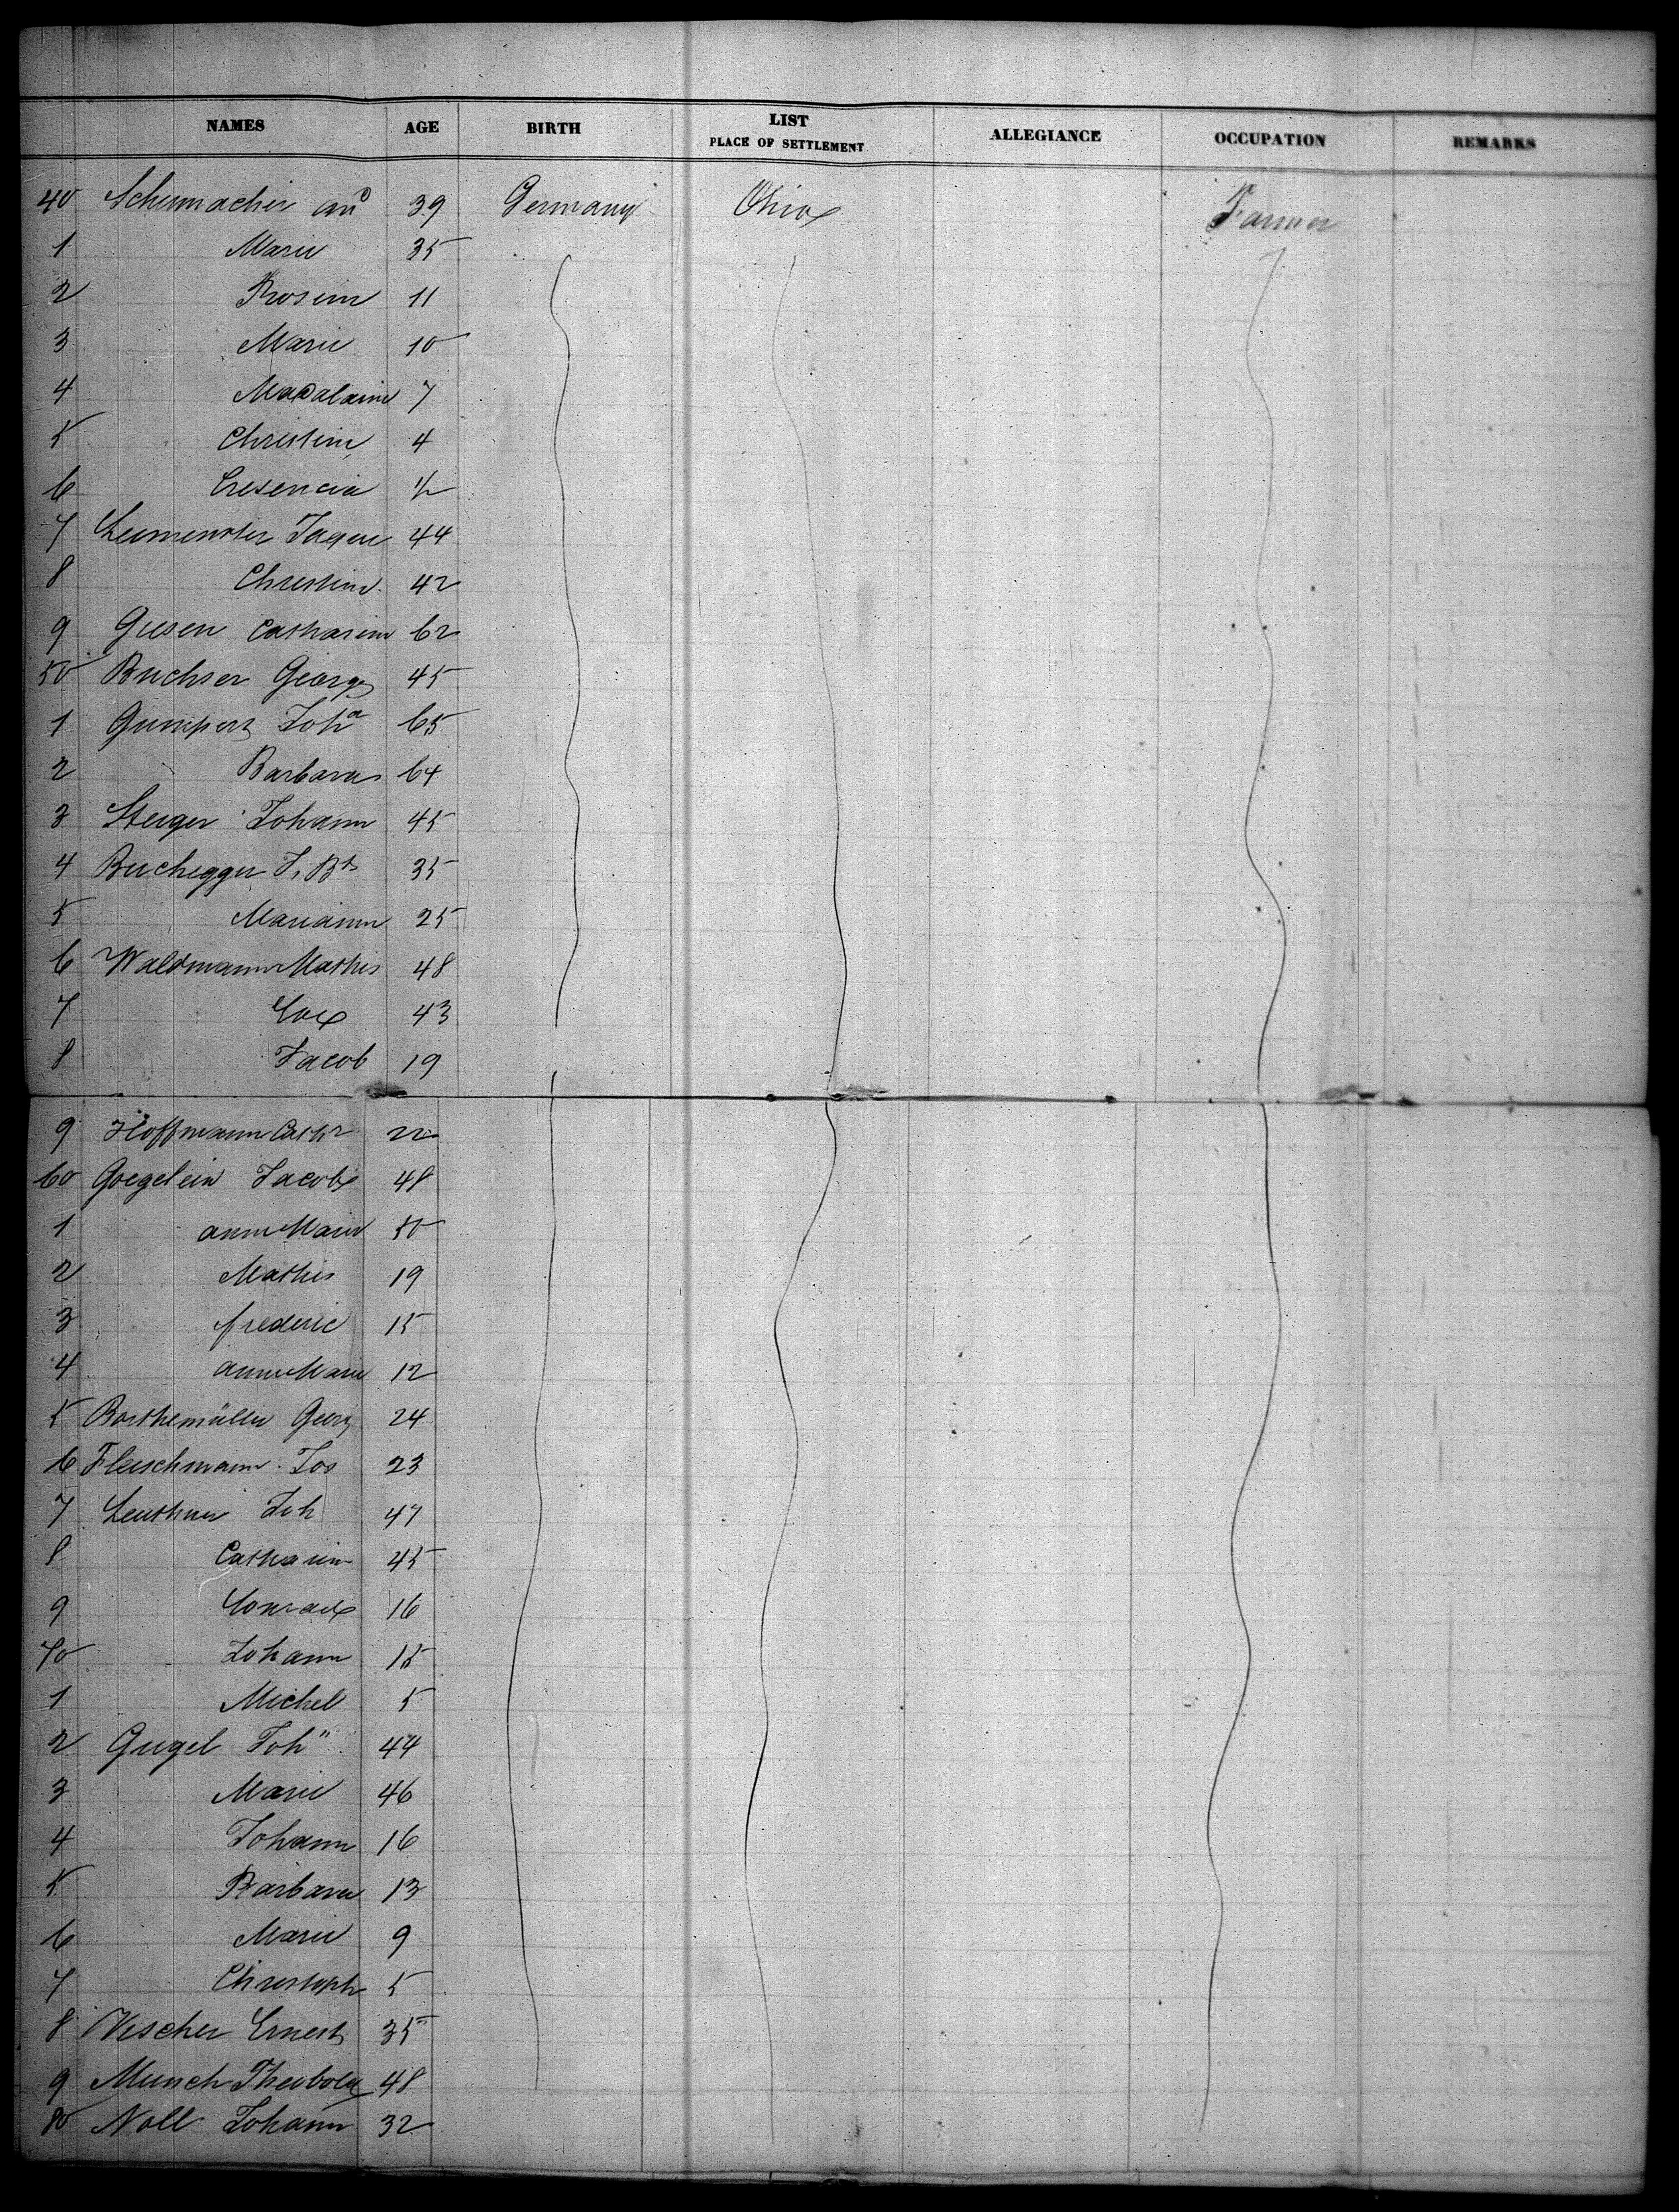 NAMES AGE BIRTH LIST PLACE OF SETTLEMENT ALLEGIANCE OCCUPATION REMARKS
40 Schumacher an^d 39 Germany Ohio Farmer
1 Marie 35
2 Rosine 11
3 Marie 10
4 Madalaine 7
5 Christine 4
6 Cresencia 1/2
7 44
8 Christine 42
9 Giesen Catharine 62
50 Buchser George 45
1 Gumpert Joh^a 65
2 Barbara 64
3 Steiger Johann 45
4 Buchegger J. Bt 35
5 Mariann 25
6 Waldmann Mathis 48
7 43
8 Jacob 19
9 Hoffmann Cath 22
60 Goegelein Jacob 48
1 Anne Marie 50
2 Mathis 19
3 frederic 15
4 Anne Marie 12
5 Barthemüller Georg 24
6 Fleischmann Jos 23
7 Leuthner Joh 47
8 Catharine 45
9 Conrad 16
70 Johann 15
1 Michel 5
2 Gugel Joh" 44
3 Marie 46
4 Johann 16
5 Barbara 13
6 Marie 9
7 Christoph 5
8 Vescher Ernest 35
9 Munch Theobold 48
80 Noll Johann 32